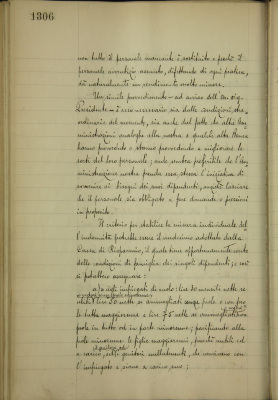 1306
non tutto il personale mancante è sostituito e perché il
personale avventizio assunto, difettando di ogni pratica,
dà naturalmente un rendimento molto minore.
Un simile provvedimento - ad avviso dell' on. sig.
Presidente - è reso necessario sia dalle condizioni stra-
ordinarie del momento, sia anche dal fatto che altre Am-
ministrazioni analoghe alla nostra e qualche altra Banca
hanno provveduto o stanno provvedendo a migliorare le
sorti del loro personale; onde sembra preferibile che l'Am-
ministrazione nostra prenda essa stessa l'iniziativa di
sovvenire ai bisogni dei suoi dipendenti, anziché lasciare
che il personale sia obbligato a fare domande o pressioni
in proposito.
Il criterio per stabilire la misura individuale del-
l'indennità potrebbe essere il medesimo adottato dalla
Cassa di Risparmio, il quale tiene opportunamente conto
delle condizioni di famiglia dei singoli dipendenti; e così
si potrebbero assegnare:
a) a agli impiegati di ruolo: lire 30 mensili nette se
celibi; lire 50 nette se ammogliati senza prole o con prole
tutta maggiorenne e lire 75 nette se ammogliati con
prole in tutto od in parte minorenne; parificando alla
prole minorenne le figlie maggiorenni, purché nubili ed
a carico, ed i genitori nullatenenti, che convivano con
l'impiegato e siano a carico suo;